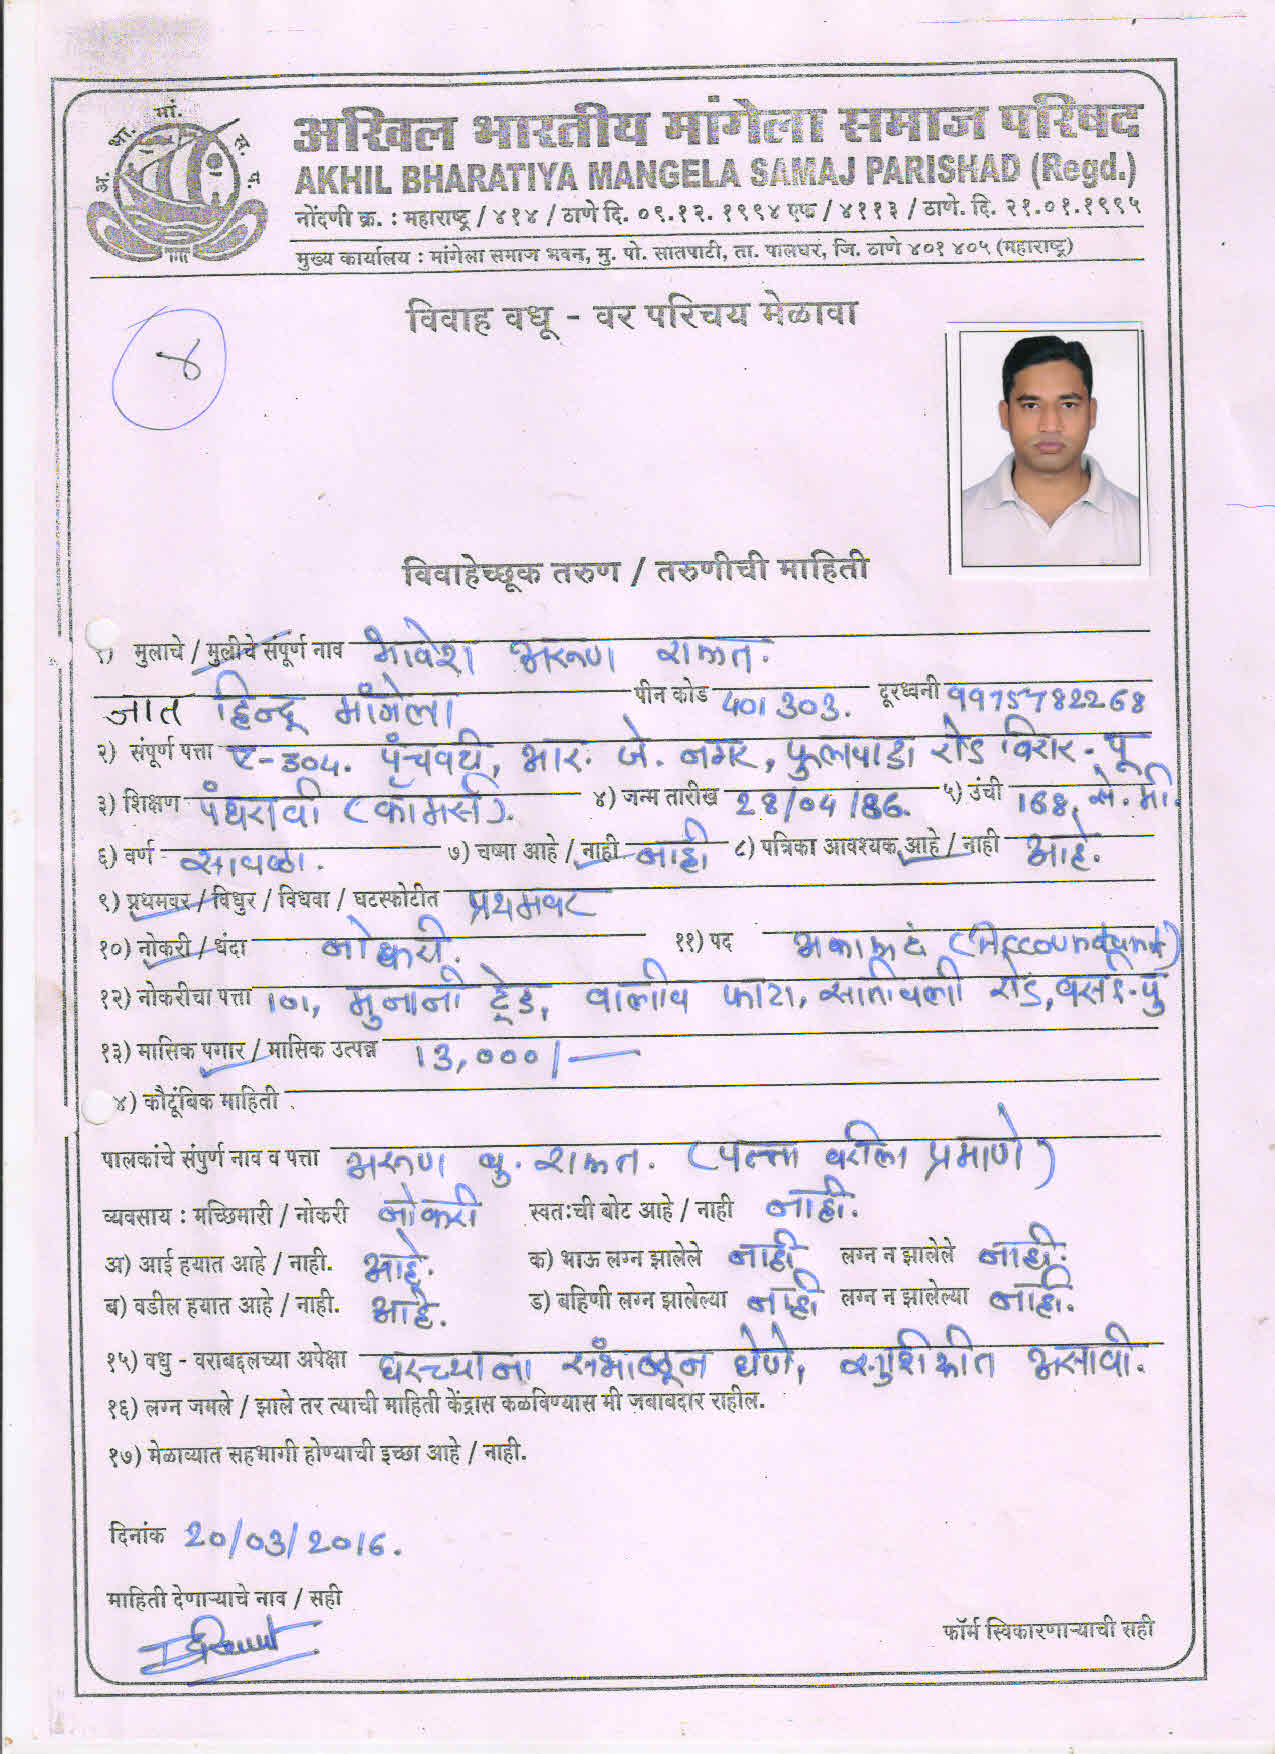 अ. भा. मां. स. प.
अखिल भारतीय मांगेला समाज परिषद
AKHIL BHARATIYA MANGELA SAMAJ PARISHAD (Regd.)
नोंदणी क्र. : महाराष्ट्र / ४१४ / ठाणे दि. ०९.१२. १९९४ एफ / ४११३ / ठाणे. दि. २१.०१.१९९५
मुख्य कार्यालय : मांगेला समाज भवन, मु. पो. सातपाटी, ता. पालघर, जि. ठाणे ४०१ ४०५ (महाराष्ट्र)
विवाह वधू - वर परिचय मेळावा
४
विवाहेच्छूक तरुण / तरुणीची माहिती
१) मुलाचे / मुलीचे संपूर्ण नाव भावेश अरूण राऊत.
जात हिन्दू मांगेला पीन कोड 401 303. दूरध्वनी 9975782268
२) संपूर्ण पत्ता ए-304. पंचवटी, आर. जे. नगर, फुलपाडा रोड विरार-पू
३) शिक्षण पंधरावी (कॉमर्स). ४) जन्म तारीख 28/04/86. ५) उंची 168, से.मी.
६) वर्ण सावळा. ७) चष्मा आहे / नाही नाही ८) पत्रिका आवश्यक आहे / नाही आहे.
९) प्रथमवर / विधुर / विधवा / घटस्फोटीत प्रथमवर
१०) नोकरी / धंदा नोकरी. ११) पद अकाऊटं (Accoundtant)
१२) नोकरीचा पत्ता 101, मुनानी ट्रेड, वालीव फाटा, सातिवली रोड, वसई-पु
१३) मासिक पगार / मासिक उत्पन्न 13,000/-
४) कौटूंबिक माहिती
पालकांचे संपुर्ण नाव व पत्ता अरूण बु. राऊत. (पत्ता वरीला प्रमाणे)
व्यवसाय : मच्छिमारी / नोकरी नोकरी स्वतःची बोट आहे / नाही नाही.
अ) आई हयात आहे / नाही. आहे. क) भाऊ लग्न झालेले नाही लग्न न झालेले नाही.
ब) वडील हयात आहे / नाही. आहे. ड) बहिणी लग्न झालेल्या नाही लग्न न झालेल्या नाही.
१५) वधु - वराबद्दलच्या अपेक्षा घरच्याना संभाळून घेणे, सुशिक्षीत असावी.
१६) लग्न जमले / झाले तर त्याची माहिती केंद्रास कळविण्यास मी जबाबदार राहील.
१७) मेळाव्यात सहभागी होण्याची इच्छा आहे / नाही.
दिनांक 20/03/2016.
माहिती देणाऱ्याचे नाव / सही
फॉर्म स्विकारणाऱ्याची सही